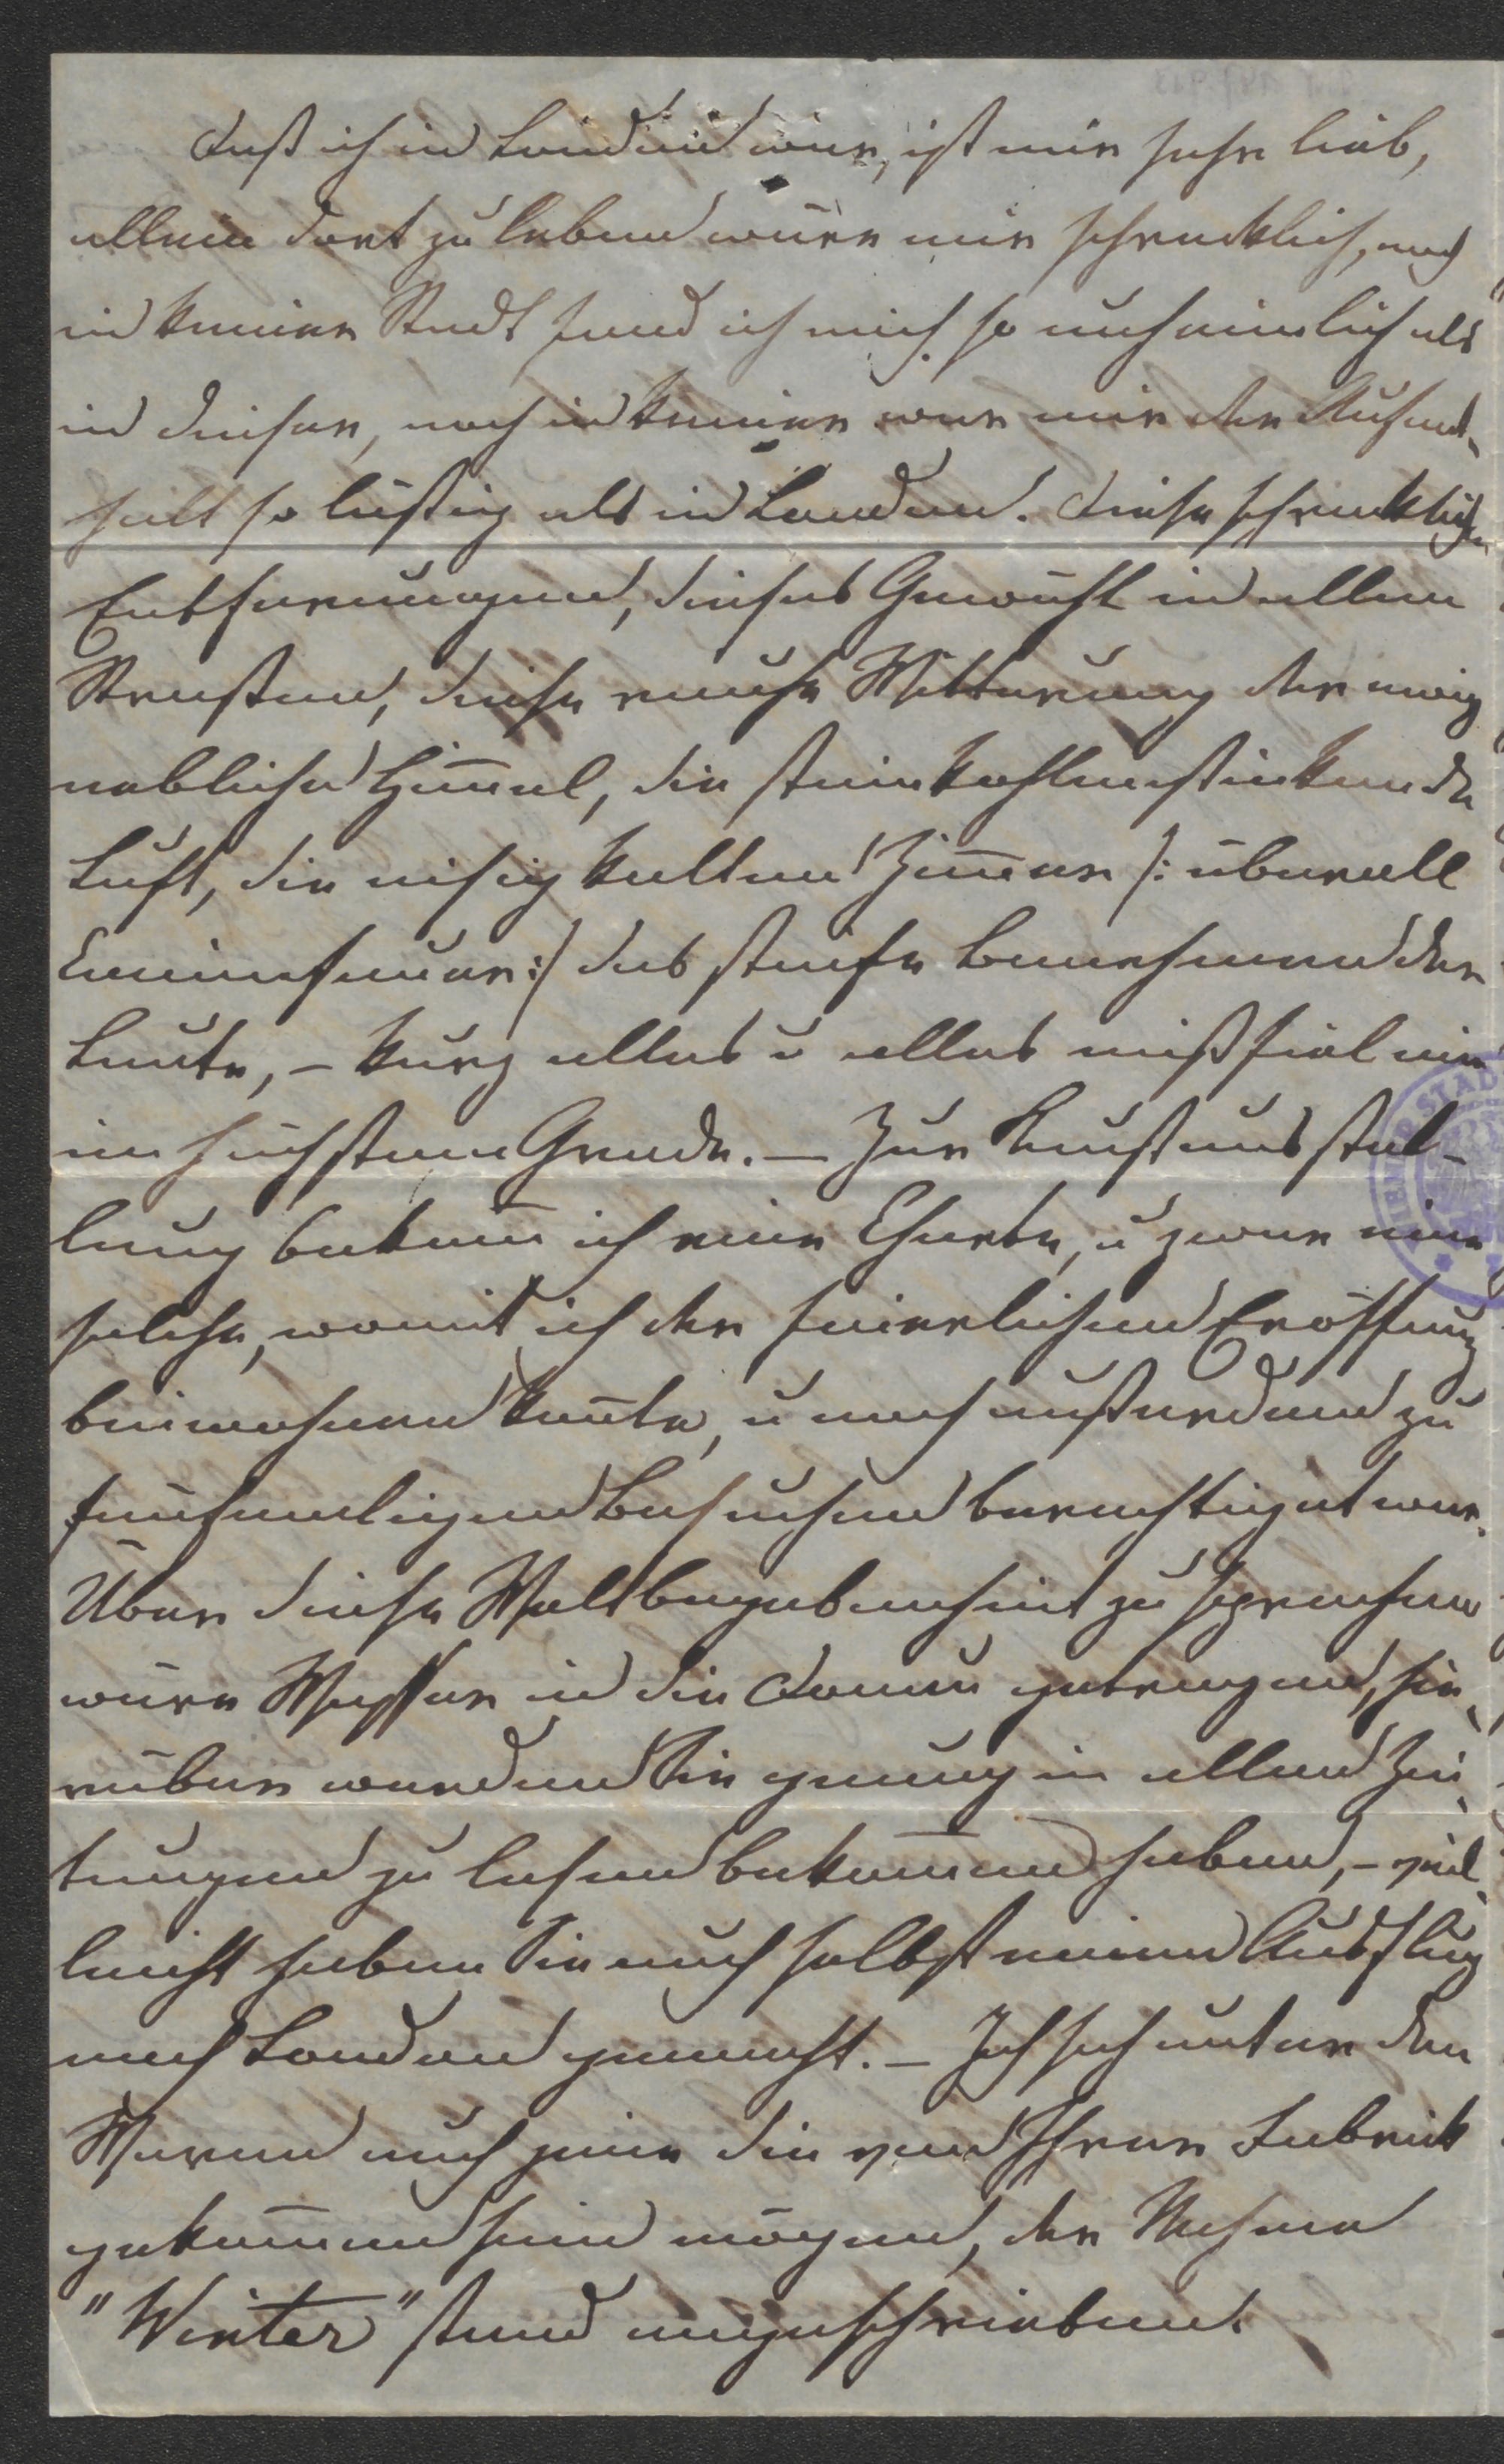 Daß ich in London war, ist mir sehr lieb,
allein dort zu leben wäre mir schrecklich, noch
in keiner Stadt fand ich mich so unheimlich als
in dieser, noch in keiner war mir der Aufent-
halt so lästig als in London. Diese schrecklichen
Entfernungen, dieses Gewühl in allen
Strassen, diese rauhe Witterung der ewig
nebliche Him̄el, die steinkohlenstinkende
Luft, die eisig kalten Zim̄er /: überall
Caminfeuer :/ das steife Benehmen der
Leute, – kurz alles u alles mißfiel mir
im höchsten Grade. – Zur Kunstausstel-
lung bekam ich eine Charte, u zwar eine
solche, womit ich der feierlichen Eröffnung
beiwohnen kon̄te, u noch außerdem zu
fünfmaligen Besuchen berechtiget war.
Über diese Weltbegebenheit zu sprechen
wäre Wasser in die Donau getragen, hie-
rüber werden Sie genug in allen Zei-
tungen zu lesen bekom̄en haben, – viel-
leicht haben Sie auch selbst einen Ausflug
nach London gemacht. – Ich sah unter den
Waren auch jene die von Ihrer Fabrick
gekom̄en sein mögen, der Nahme
"Winter" stand angeschrieben.